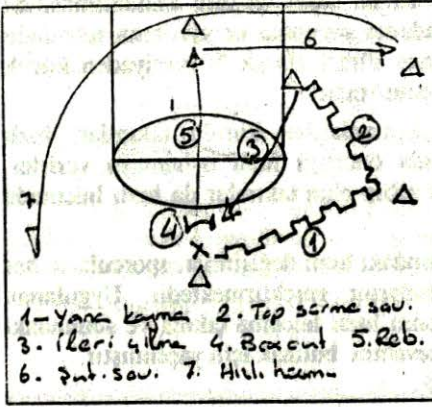 6
5
3
2
7
4
1
X
1- Yana kayma 2. Top sürme sav.
3. ileri çıkma 4. Boxout 5. Reb.
6. Şut. sav. 7. Hızlı hücum